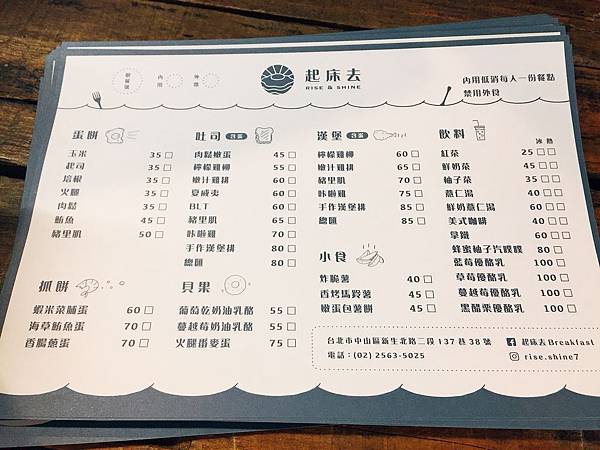 桌號
內用
外帶
起床去
RISE & SHINE
內用低消每人一份餐點
禁用外食
蛋餅
玉米 35
起司 35
培根 35
火腿 35
肉鬆 35
鮪魚 45
豬里肌 50
吐司 含蛋
肉鬆嫩蛋 45
檸檬雞柳 55
嫩汁雞排 60
夏威夷 60
BLT 60
豬里肌 65
咔啦雞 70
手作漢堡排 80
總匯 80
漢堡 含蛋
檸檬雞柳 60
嫩汁雞排 65
豬里肌 70
咔啦雞 75
手作漢堡排 85
總匯 85
飲料
冰 熱
紅茶 25
鮮奶茶 45
柚子茶 35
薏仁湯 40
鮮奶薏仁湯 50
美式咖啡 40
拿鐵 60
蜂蜜柚子汽噗噗 80
藍莓優酪乳 100
草莓優酪乳 100
蔓越莓優酪乳 100
黑醋栗優酪乳 100
抓餅
蝦米菜脯蛋 60
海草鮪魚蛋 70
香腸蔥蛋 70
貝果
葡萄乾奶油乳酪 55
蔓越莓奶油乳酪 55
火腿番麥蛋 75
小食
炸脆薯 40
香烤馬鈴薯 45
嫩蛋包薯餅 45
台北市中山區新生北路二段137巷38號
電話：(02) 2563-5025
起床去Breakfast
rise.shine7